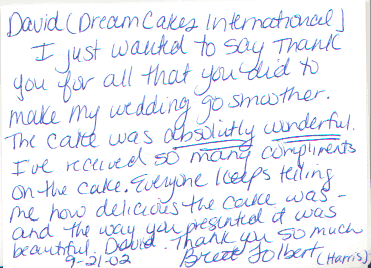 David (DreamCakes International)
I just wanted to say Thank
you for all that you did to
make my wedding go smoother.
The cake was absolutly wonderful.
I've received so many compliments
on the cake. Everyone keeps telling
me how delicious the cake was -
and the way you presented it was
beautiful. David. Thank you so much
9-21-02 Brett Tolbert (Harris)